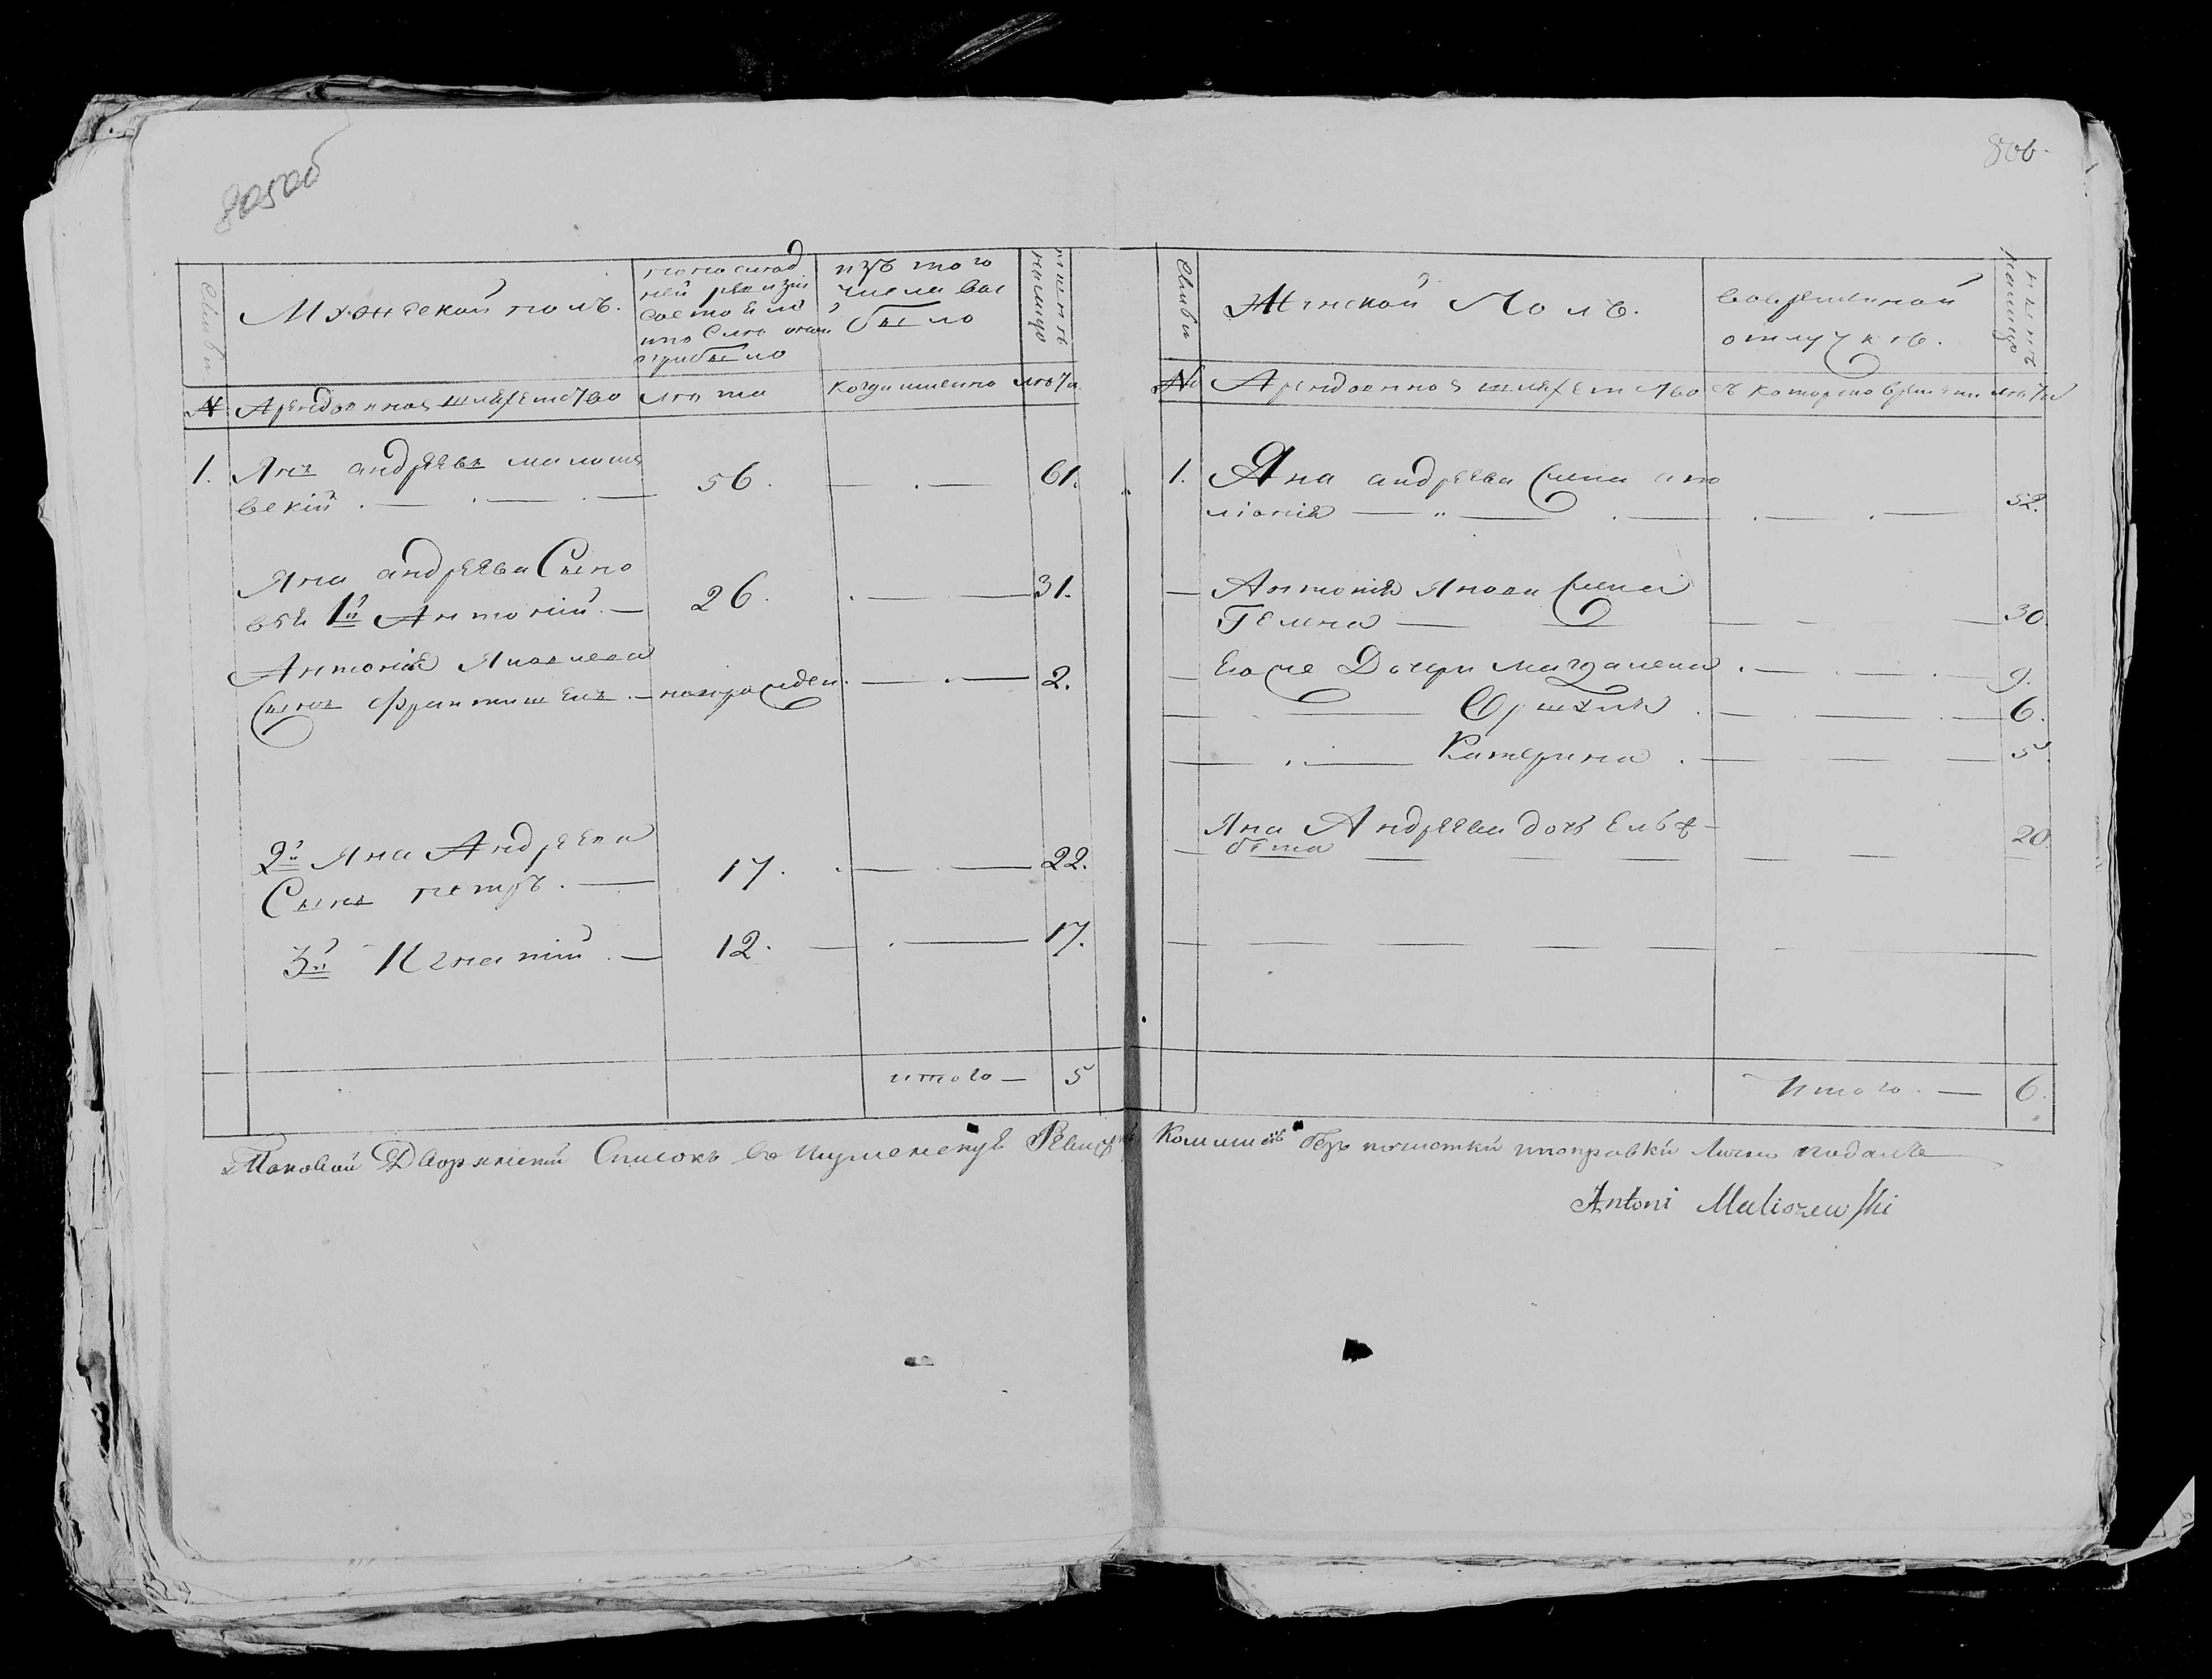 805об
806.
Семьи
Мужеской полъ.
по послед
ней ревизіи
состояло
и после оной
прибыло
изъ того
числа вы
было
нынѣ
налицо
№
Арендовное шляхетство
лѣта
когда именно
лѣта
1. Янъ андрѣевъ малише
вскій 56. 61.
Яна андрѣева Сыно
вья 1й Антоній. 26. 31.
Антонія Яновлева
Сынъ Франтишекъ. новорожден. 2.
2й Яна Андреева
Сынъ петръ. 17. 22.
3й Игнатій. 12. 17.
итого 5
Семьи
Женской Полъ.
вовременной
отлучкѣ.
нынѣ
налицо
№
Арендовное шляхетство
съ которого времени
лѣта
1. Яна андреева жена апо
лонія 52.
Антонія Янова жена
Гелена 30.
Его же Дочери магдалена 9.
6.
Катерина 5.
Яна Андреева дочь Ельз-
бета 20.
Итого. 6.
Таковой Дворянский Списокъ во Игуменскую Ревизск. Комисию безъ почистки ипоправки Лично подалъ
Antoni Maliszewski